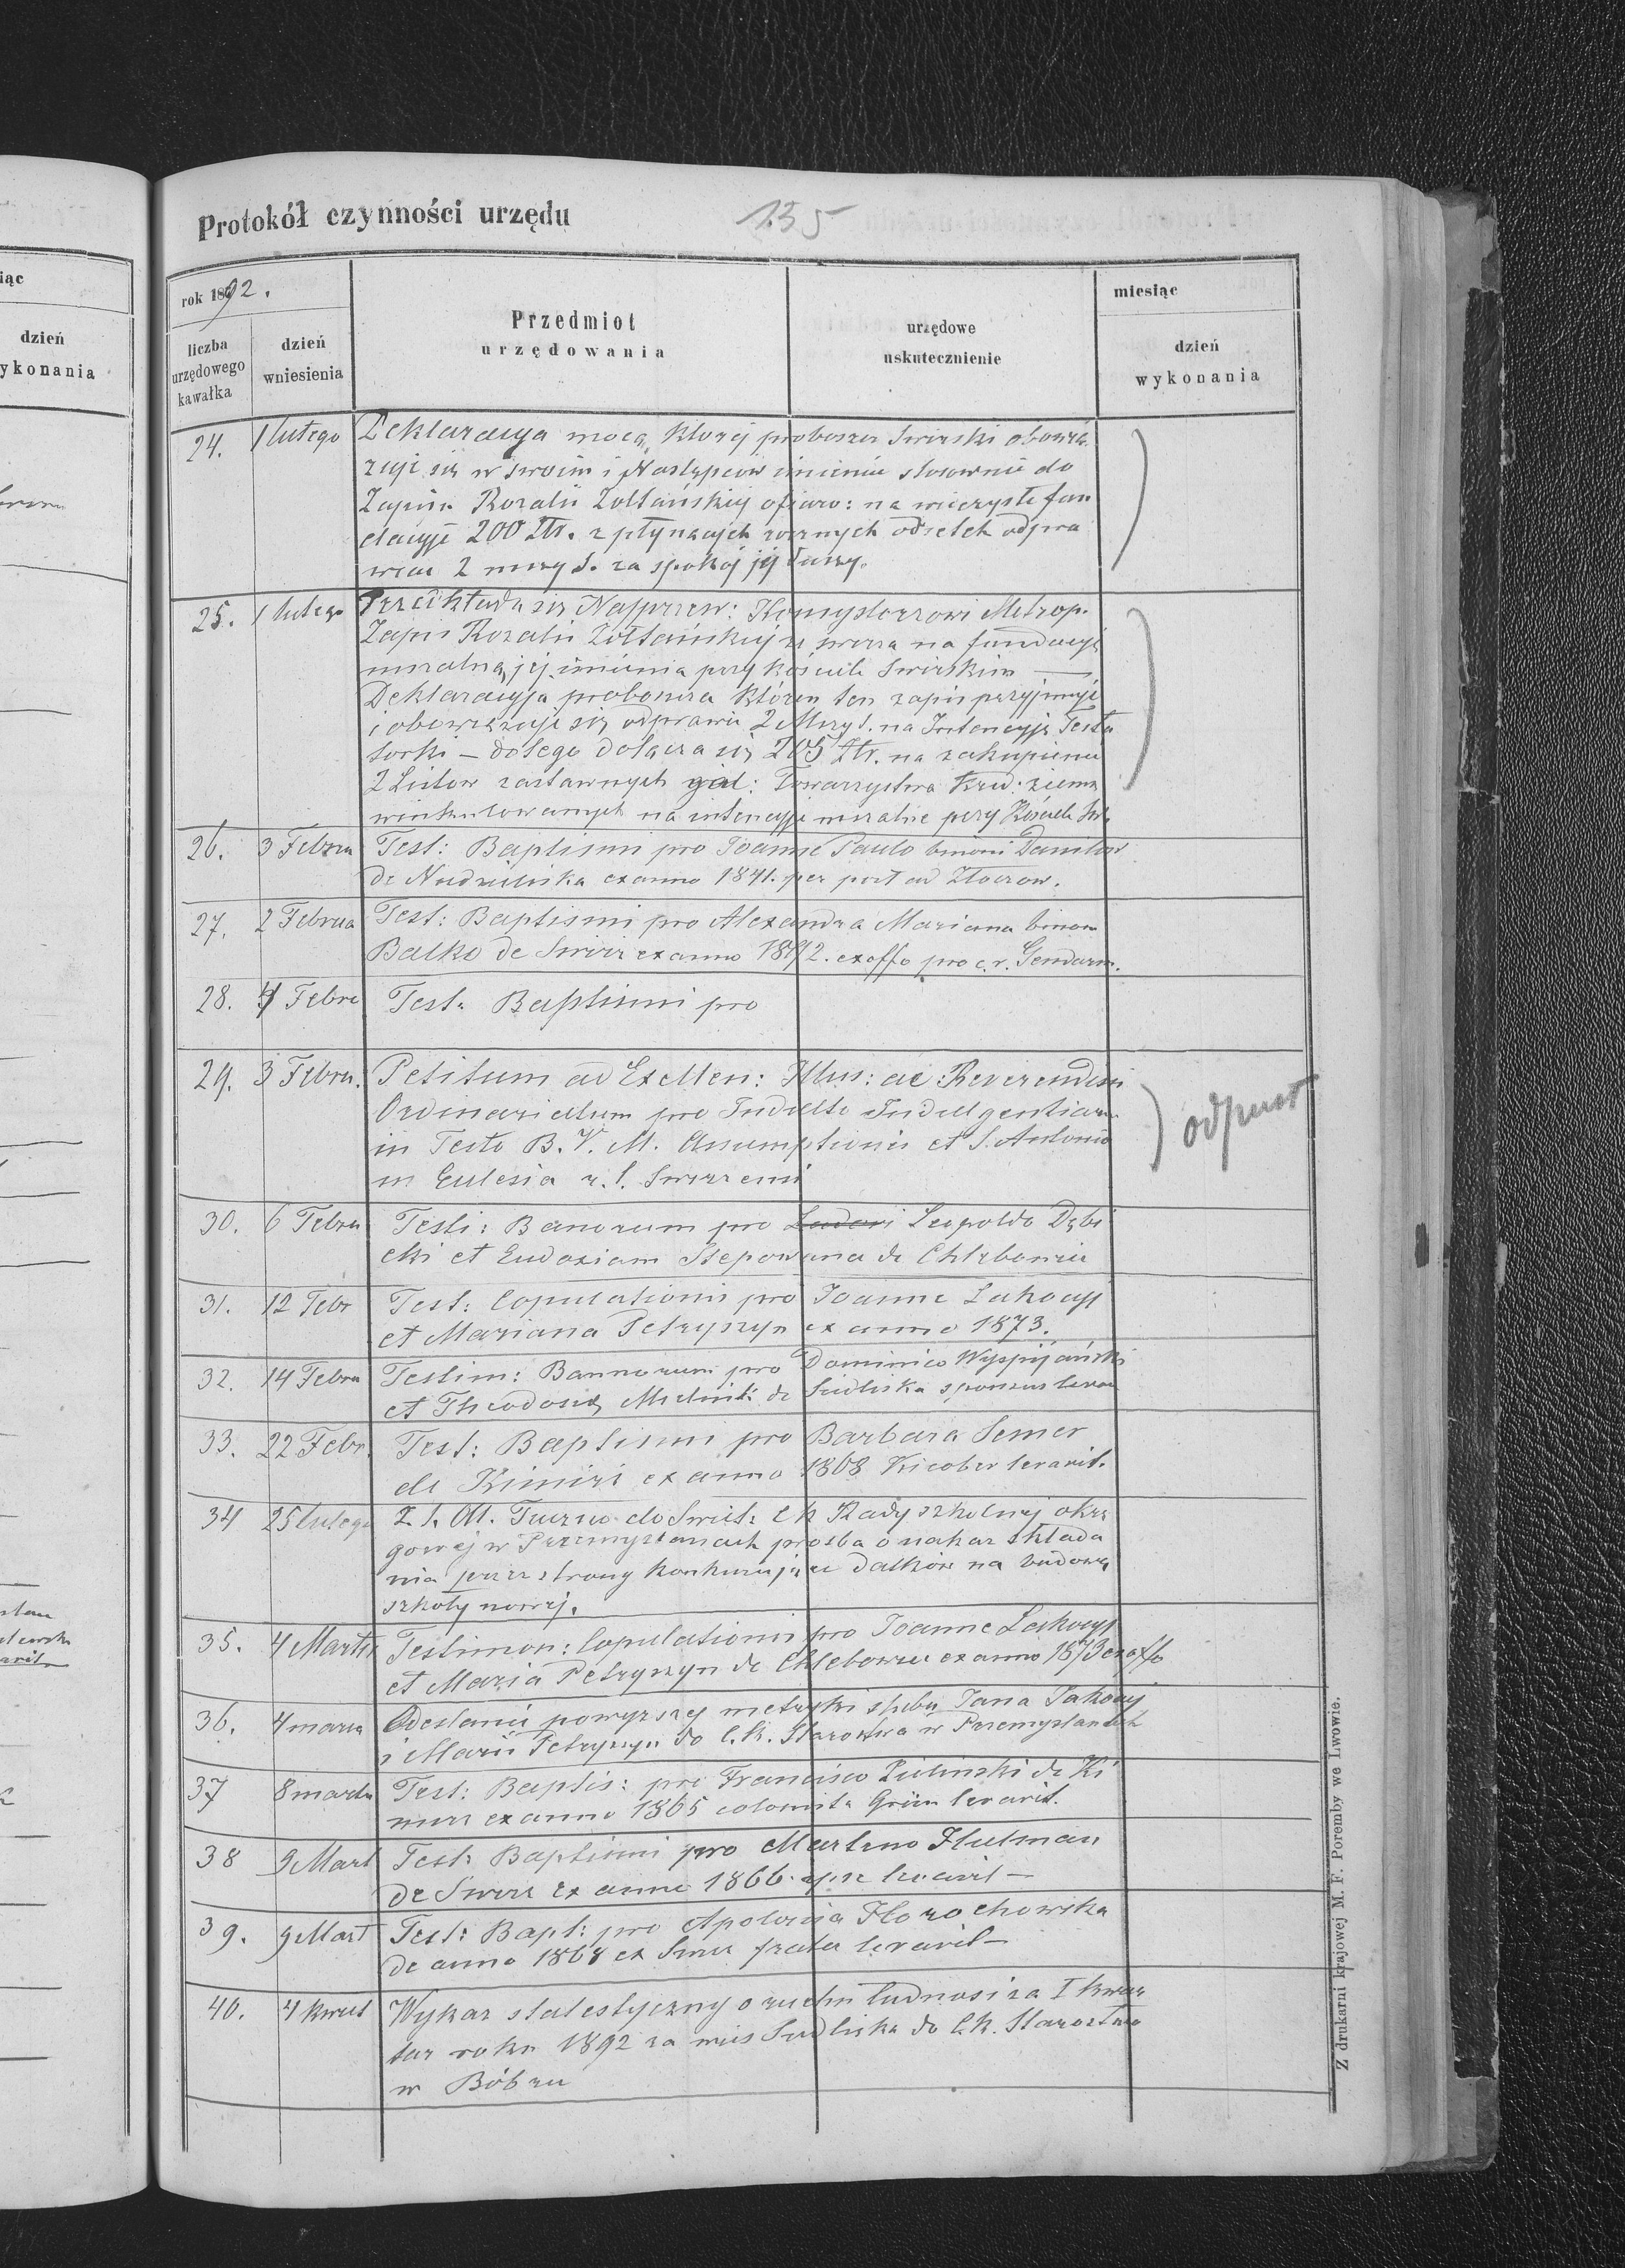 Protokół czynności urzędu
135
rok 1892.
liczba urzędowego kawałka
dzień wniesienia
Przedmiot urzędowania
urzędowe uskutecznienie
miesiąc
dzień wykonania
24. 1 lutego Deklaracya mocą ktorej proboszcz Swirski obowią
zuje się w swoim i Następców imieniu stosownie do
Zapisu Rozalii Zołtańskiej ofiaro: na wieczyste fun
dacyje 200 Złr. z płynących rocznych odsetek odpra
wiac 2 mszy S. za spokój jej duszy.
25. 1 lutego Przedkłada się Najprzew: Komsystorzowi Metrop.
Zapis Rozalii Zółtańskiej ze na fundacyję
mszalną jej imienia przy kościele Swirskim —
Deklaracyja proboszcza który ten zapis przyjmuje
i obowięzuje się odprawić 2 Mszy S. na Intencyję Testa
torki — do tego dołącza się 205 Złr. na zakupienie
2 Listow zastawnych gal: Towarzystwa Kred: ziems
winkulowanych na intencyje mszalne przy Kościele Sw.
26. 3 Februa Test: Baptismi pro Joanne Paulo binomi Danilow
de Niedzieliska ex anno 1841. per post ad Złoczow.
27. 2 Februa Test: Baptismi pro Alexandra Mariana binom
Balko de Swirz ex anno 1892. ex offo pro c. r. Gendarm.
28. 4 Febru Test: Baptismi pro
29. 3 Febru. Petitum ad Exellen: Illus: ac Reverendissi
Ordinariatum pro Indulto Indulgentiarum
in Festo B. V. M. Assumptionis et S. Antonio
in Eclesia r. l. Swirzensi
odpust
30. 6 Febru Testi: Banorum pro Leopoldo Dębi
cki et Eudoxiam Stepowana de Chlebowice
31. 12 Febr Test: Copulationis pro Joanne Lakocyj
et Mariana Petryszyn ex anno 1873.
32. 14 Febru Testim: Bannorum pro Dominico Wyspijański
et Theodosią Mielnik de Siedliska sponsus
33. 22 Febr. Test: Baptismi pro Barbara Semer
de Kimirz ex anno 1868 levavit.
34 25 lutego do Swiet: C k Rady szkolnej okrę
gowej w Przemyslanach prosba o nakaz składa
nia przez strony konkurujące datków na budowę
szkoły nowej.
35. 4 Martii Testimon: Copulationis pro Joanne Lakocyj
et Maria Petryszyn de Chlebowice ex anno 1873 ex offo
36. 4 marca Odesłanie powyzszej metryki slubu Jana Lakocyj
i Marii Petryszyn do C. K. Starostwa w Przemyslanach
37 8 marca Test: Baptis: pro Francisco Zielinski de Ki
mirz ex anno 1865 colonista Grün levavit.
38 9 Mart Test: Baptismi pro Martino Hutman
de Swirz ex anno 1866. ipse levavit —
39. 9 Mart Test: Bapt: pro Apolonia Horochowska
de anno 1868 ex Swirz frater levavit —
40. 4 kwiet Wykaz statestyczny o ruchu ludnosi za I kwar
tar roku 1892 za wieś Siedliska do C. K. Starostwa
w Bóbrce
Z drukarni krajowej M. F. Poremby we Lwowie.
iąc
dzień
ykonania